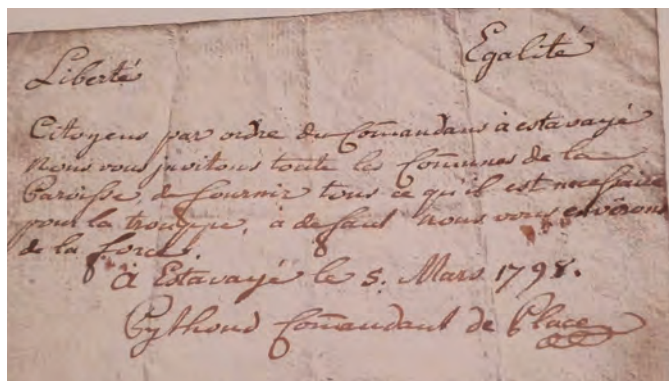 Liberté Egalité
Citoyens par ordre du Com̄andans à estavayé
nous vous jnvitons toute les Com̄unes de la
Paroisse, de fournir tous ce qu'il est necessaire
pour la trouppe, à defaut nous vous
de la force.
à Estavayé le 5. Mars 1798.
Com̄andant de Place